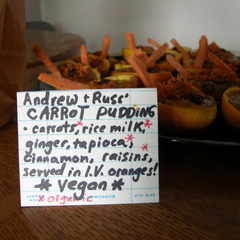 Andrew + Russ'
CARROT PUDDING
• carrots,* rice milk,*
ginger,* tapioca,*
cinnamon, raisins,
served in I.V. oranges!*
* Vegan *
* organic